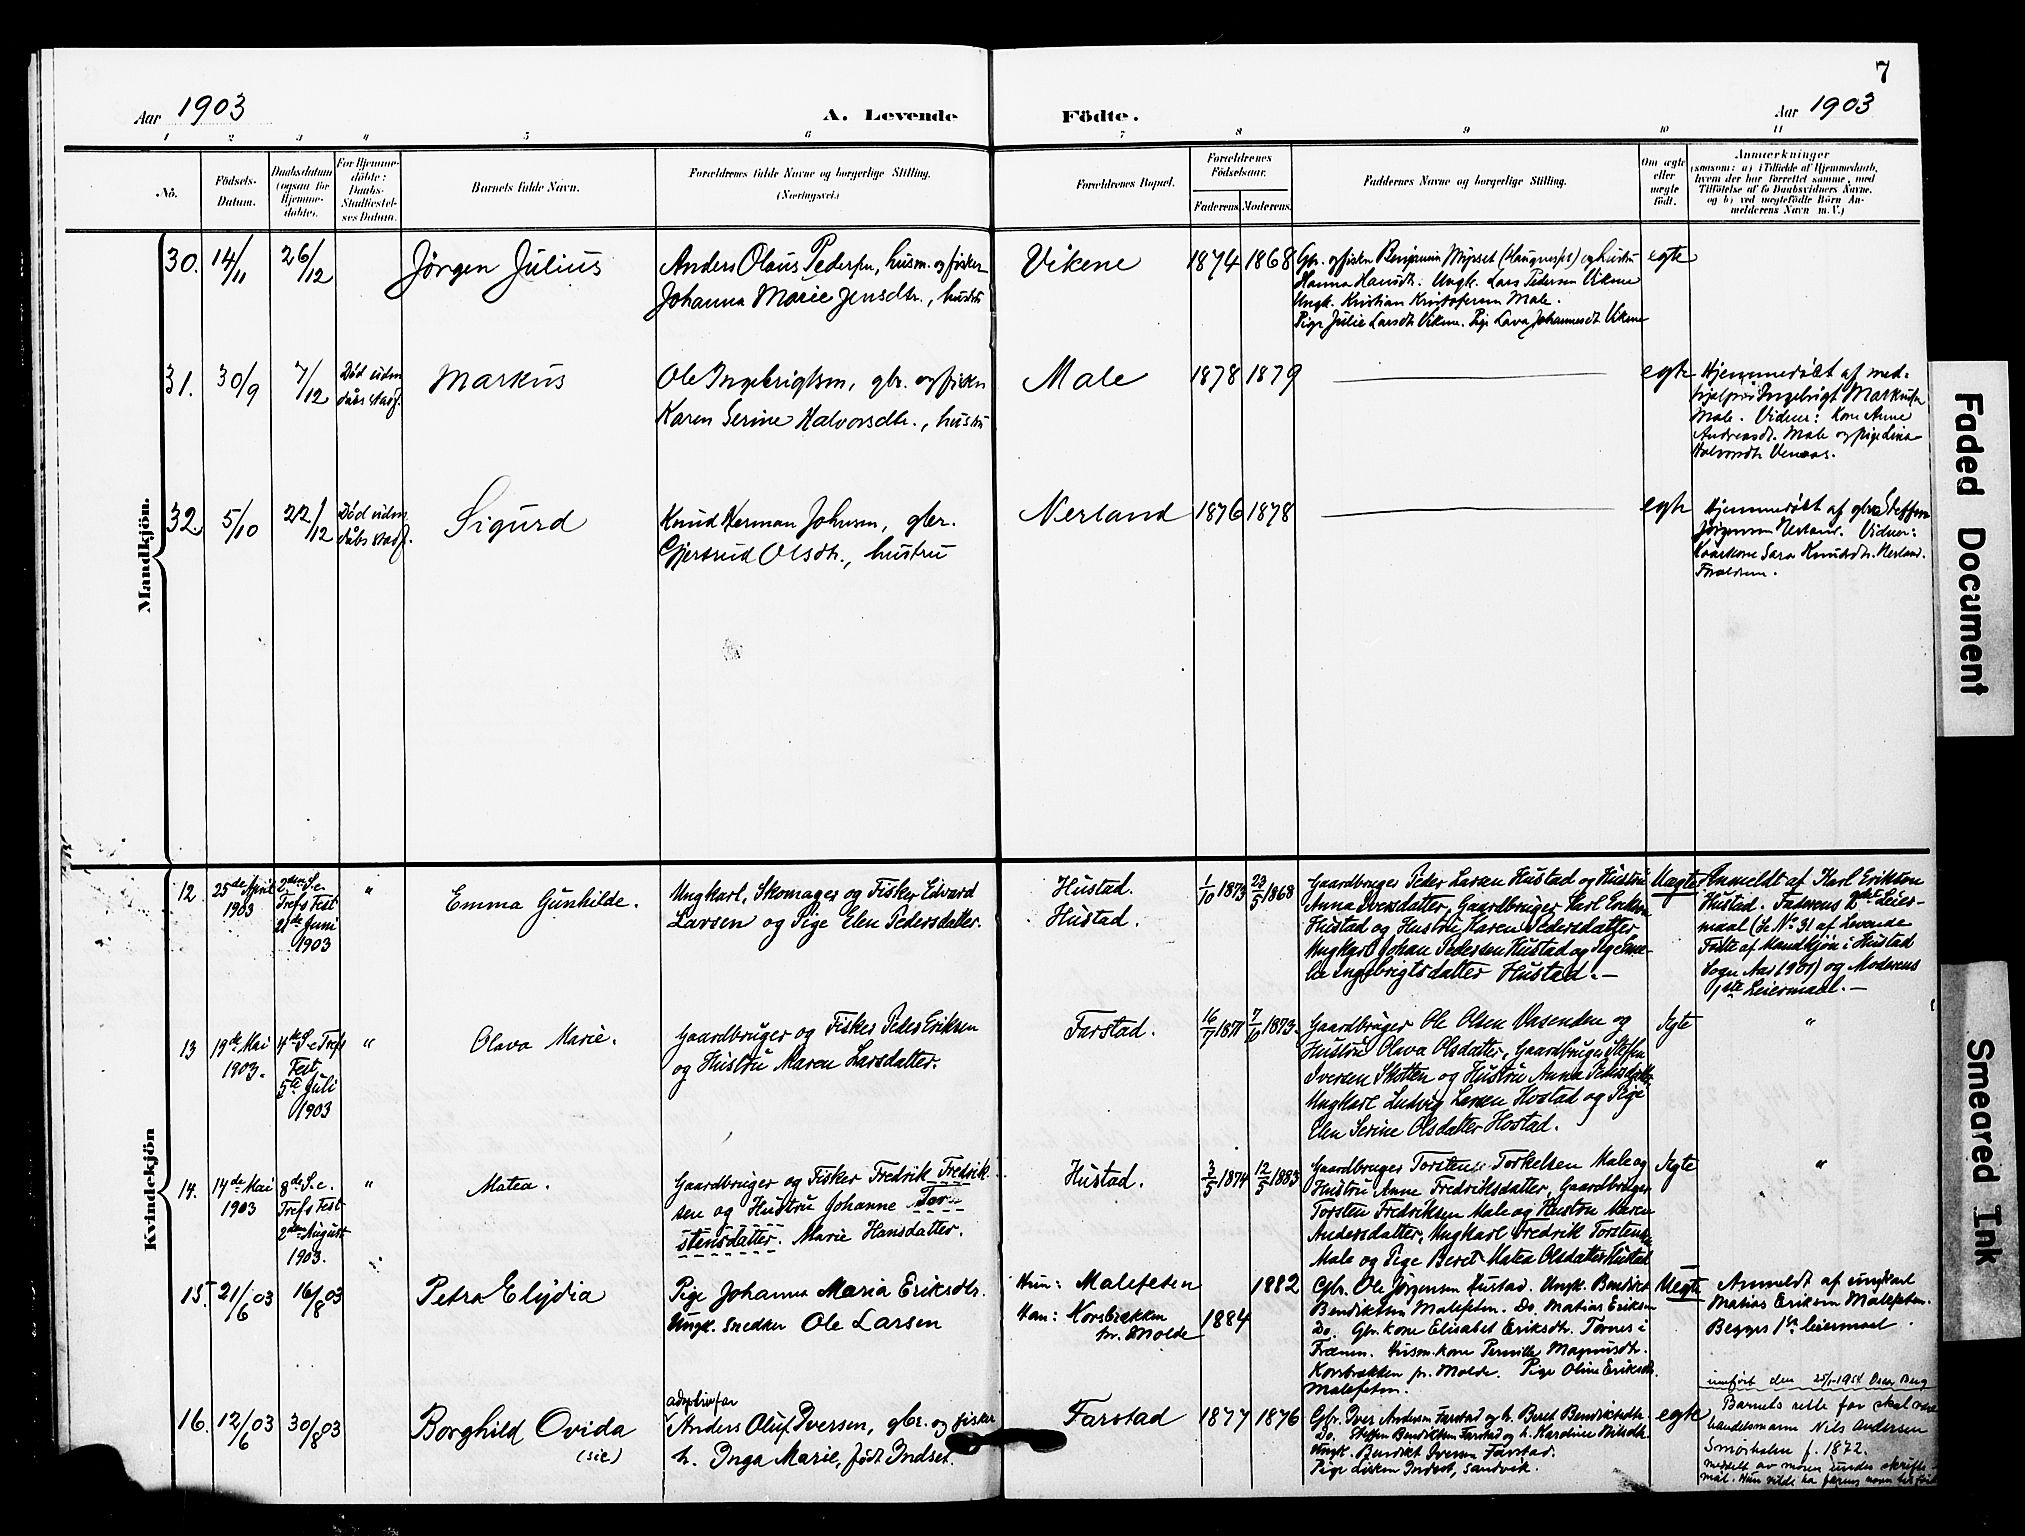 7
Aar 1903
A. Levende Födte.
Aar 1903
1 2 3 4 5 6 7 8 9 10 11
No.
Födsels-
Datum.
Daabsdatum
(ogsaa for
Hjemme-
döbte).
For Hjemme-
döbte:
Daabs-
Stadfæstel-
ses Datum.
Barnets fulde Navn.
Forældrenes fulde Navne og borgerlige Stilling.
(Næringsvei.)
Forældrenes Bopæl.
Forældrenes
Födselsaar.
Faderens. Moderens.
Faddernes Navne og borgerlige Stilling.
Om ægte
eller
uægte
födt.
Anmærkninger
(saasom: a) i Tilfælde af Hjemmedaab,
hvem der har forrettet samme, med
Tilföielse af to Daabsvidners Navne,
og b) ved uægtefödte Börn An-
melderens Navn m. V.)
Mandkjön.
30. 14/11 26/12
Jørgen Julius
Anders Olaus Pedersen, husm. og fisker
Johanna Marie Jensdtr., hustru
Vikene
1874 1868
Gbr. og fisker Benjamin Myrset og hustru
Hanna Hansdt. Ungk. Lars Pedersen Vikene
Ungk. Kristian Kristofersen Male.
Pige Julie Larsdtr Vikene. Pige Lava Johannesdt Vikene
egte
31. 30/9 7/12
Død uden
dåbs stadf.
Markus
Ole Ingebrigtsen, gbr. og fisker
Karen Serine Halvorsdtr., hustru
Male
1878 1879
egte
Hjemmedøbt af med-
hjelper Ingebrigt Markussen
Male. Vidner: Kone Anne
Andreasdt. Male og pige Lina
Halvorsdtr Venaas.
32. 5/10 22/12
Død uden
dåbs stadf.
Sigurd
Knud Herman Johnsen, gbr.
Gjertrud Olsdtr., hustru
Nerland
1876 1878
egte
Hjemmedøbt af gbr. Steffen
Jørgensen Nerland. Vidner:
Kaarkone Sara Knutsdtr. Nerland.
Forældrene.
Kvindekjön
12
25de April
1903
2den S. e.
Trefs Fest
21de Juni
1903
"
Emma Gunhilde.
Ungkarl, Skomager og Fisker Edvard
Larsen og Pige Elen Pedersdatter.
Hustad.
Hustad.
1/10 1873 23/5 1868
Gaardbruger Peder Larsen Hustad og Hustru
Anna Iversdatter, Gaardbruger Karl Eriksen
Hustad og Hustru Karen Pedersdatter
Ungkarl Johan Pedersen Hustad og Pige
Ingebrigtsdatter Hustad. —
Uægte
Anmeldt af Karl Eriksen
Hustad. Faderens 2det Leier-
maal (Se No 31 af Levende
Fødte af Mandkjøn i Hustad
Sogn Aar 1901) og Moderens
1ste Leiermaal. —
13
19de Mai
1903.
4de S. e Trefs
Fest,
5te Juli
1903
"
Olava Marie.
Gaardbruger og Fisker Peder Eriksen
og Hustru Maren Larsdatter.
Farstad.
16/7 1871 7/10 1873.
Gaardbruger Ole Olsen Vasenden og
Hustru Olava Olsdatter, Gaardbruger Steffen
Iversen Skotten og Hustru Anna Pedersdatter
Ungkarl Ludvig Larsen Hostad og Pige
Elen Serine Olsdatter Hostad.
Ægte
"
14.
14de Mai
1903
8de S. e.
Trefs Fest
2den August
1903.
"
Matea.
Gaardbruger og Fisker Fredrik Fredrik-
sen og Hustru Johanne Tor-
stensdatter. Marie Hansdatter.
Hustad.
3/5 1874 12/5 1883
Gaardbruger Torsten Torkelsen Male og
Hustru Anne Fredriksdatter, Gaardbruger
Torsten Fredriksen Male og Hustru Maren
Andersdatter, Ungkarl Fredrik Torstensen
Male og Pige Beret Matea Olsdatter Hustad
Ægte
"
15. 21/6 03 16/8 03
Petra Elydia
Pige Johanna Maria Eriksdtr.
Ungk. snedker Ole Larsen
Hun: Malefeten
Han: Korsbrækken
pr. Molde
1884 1882
Gbr. Ole Jørgensen Hustad. Ungk. Bendikt
Bendiktsen Malefeten. Do. Matias Eriksen
Do. Gbr. kone Elisabet Eriksdtr. Tornes i
Frænen. Husm. kone Pernille Magnusdtr.
Korsbrækken pr. Molde. Pige Oline Eriksdt.
Malefeten.
Uegte
Anmeldt af ungkarl
Matias Eriksen Malefeten.
Begges 1ste leiermaal.
16. 12/6 03 30/8 03
Borghild Ovida
(sic)
adoptivfar
Anders Oluf Iversen, gbr. og fisker
h. Inga Marie, født Indset.
Farstad
1877 1876
Gbr. Iver Andersen Farstad og h. Beret Bendiktsdtr.
Do. Steffen Bendiktsen Farstad og h. Karoline Nilsdtr.
Ungk. Bendikt Iversen Farstad.
Pige Lisken Indset, Sandvik.
egte
innført den 25/1-1954 Oscar Berg
Barnets rette far skal være
handelsmann Nils Andersen
Smørhalen f. 1872.
meddelt av moren under skrifte-
mål. Hun vilde ha farens navn
Faded Document
Smeared Ink